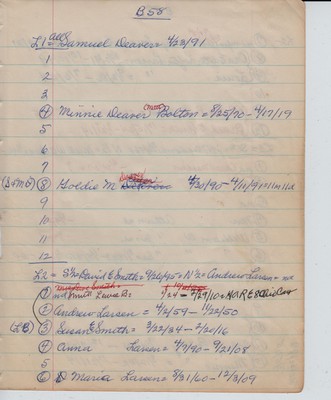 B58
L1 = all Samuel Deaver = 4/23/91
1
2
3
4 Minnie Deaver Bolton = 8/25/70 - 4/17/19
5
6
7
(S+M6) 8 Goldie M 4/20/90 - 4/11/91
9
10
11
12
L2 = S½ David E Smith = 9/26/45 = N½ = Andrew Larsen =
1
2 Andrew Larsen = 4/6/59 - 11/22/50
(LB) 3 Susan E Smith = 3/22/84 - 2/20/16
4 Anna Larsen = 4/7/90 - 9/21/08
5
6 Maria Larsen = 8/31/60 - 12/3/09